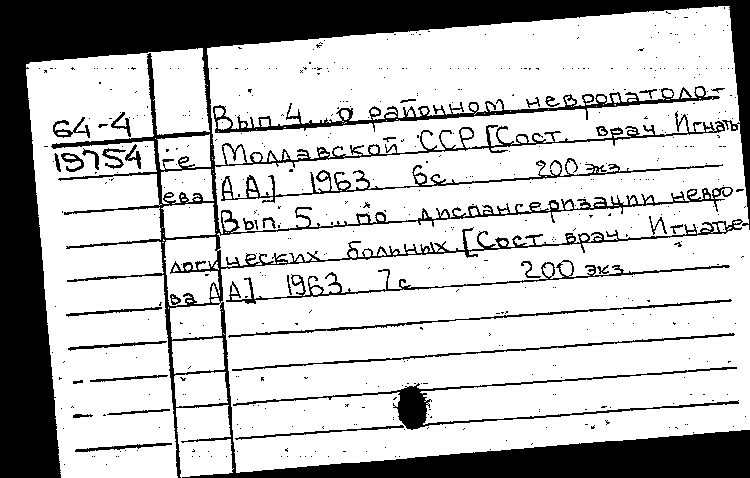 Вып. 4. ...о районном невропатоло-
64-4
19754 ге Молдавской ССР [Сост. врач Игнать
ева А.А.] 1963. 6с. 200 экз.
Вып. 5. ...по диспансеризации невро-
логических больных. [Сост. врач. Игнатье-
ва А А]. 1963. 7с 200 экз.